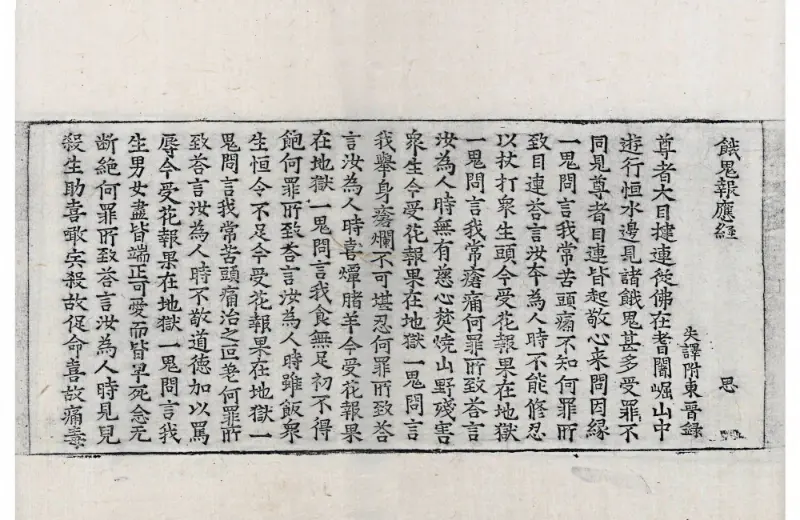 餓鬼報應經 思
失譯附東晉錄
尊者大目揵連從佛在耆闍崛山中
遊行恒水邊見諸餓鬼甚多受罪不
同見尊者目連皆起敬心来問因緣
一鬼問言我常苦頭痛不知何罪所
致目連荅言汝夲為人時不能修忍
以杖打衆生頭今受花報果在地獄
一鬼問言我常瘡痛何罪所致荅言
汝為人時無有慈心焚燒山野殘害
衆生今受花報果在地獄一鬼問言
我舉身瘡爛不可堪忍何罪所致荅
言汝為人時喜燖賭羊今受花報果
在地獄一鬼問言我食無足初不得
飽何罪所致荅言汝為人時雖飯衆
生恒令不足今受花報果在地獄一
鬼問言我常苦頭痛治之叵差何罪所
致荅言汝為人時不敬道德加以罵
辱今受花報果在地獄一鬼問言我
生男女盡皆端正可愛而皆早死念无
断絶何罪所致荅言汝為人時見兒
殺生助喜噉宍殺故促命喜故痛毒